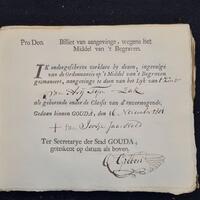 Pro Deo.
Billiet van aangevinge, wegens het
Middel van 't Begraven.
IK ondergeschreve verklare by deezen, ingevolge
van de Ordonnantie op 't Middel van 't Begraven
geëmaneert, aangevinge te doen van het Lyk van 't Kind
van
als gehorende onder de Classis van d'onvermogende.
Gedaan binnen GOUDA, den 16
+ van
Ter Secretarye der Stad GOUDA,
getekent op datum als boven.